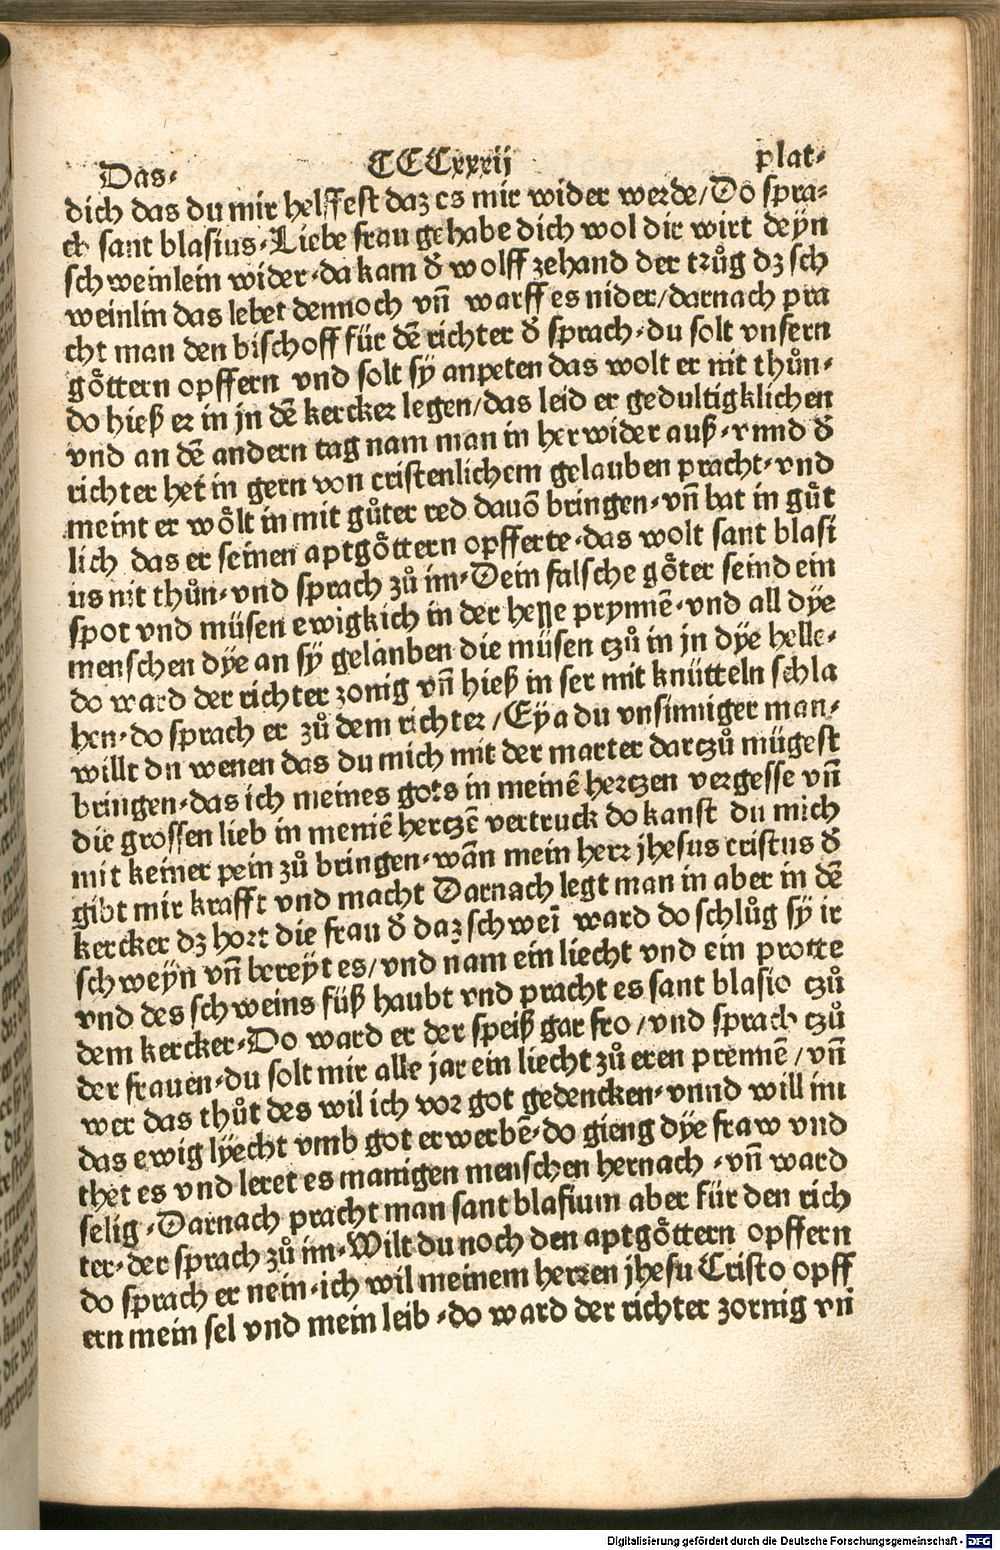 Das· CCCxxxij plat·
dich das du mir helffest daz es mir wider werde/Do spra⸗
ch sant blasius·Liebe frau gehabe dich wol dir wirt deyn
schweinlein wider·da kam d̕ wolff zehand der trůg dz sch
weinlin das lebet dennoch vn̄ warff es nider/darnach pra
cht man den bischoff für dē richter d̕ sprach·du solt vnsern
gǒttern opffern vnd solt sÿ anpeten das wolt er nit thůn·
do hieß er in jn dē kercker legen/das leid er gedultigklichen
vnd an dē andern tag nam man in herwider auß·vnnd d̕
richter het in gern von cristenlichem gelauben pracht·vnd
meint er wǒlt in mit gůter red dauō bringen·vn̄ bat in gůt
lich das er seinen aptgǒttern opfferte·das wolt sant blasi
us nit thůn·vnd sprach zů im·Dein falsche gǒter seind ein
spot vnd müsen ewigkich in der helle prynnē·vnd all dÿe
menschen dÿe an sÿ gelauben die müsen czů in jn dÿe helle·
do ward der richter zonig vn̄ hieß in ser mit knütteln schla
hen·do sprach er zů dem richter/Eÿa du vnsinniger man·
willt du wenen das du mich mit der marter darczů mügest
bringen·das ich meines gots in meinē hertzen vergesse vn̄
die grossen lieb in meniē hertzē vertruck do kanst du mich
mit keiner pein zů bringen·wān mein herr jhesus cristus d̕
gibt mir krafft vnd macht Darnach legt man in aber in dē
kercker dz hort die frau d̕ daz schweī ward do schlůg sÿ ir
schweÿn vn̄ bereÿt es/vnd nam ein liecht vnd ein protte
vnd des schweins füß haubt vnd pracht es sant blasio czů
dem kercker·Do ward er der speiß gar fro/vnd sprach czů
der frauen·du solt mir alle jar ein liecht zů eren prennē/vn̄
wer das thůt des wil ich vor got gedencken·vnnd will im
das ewig lÿecht vmb got erwerbē·do gieng dÿe fraw vnd
thet es vnd leret es manigen menschen hernach·vn̄ ward
selig·Darnach pracht man sant blasium aber für den rich
ter·der sprach zů im·Wilt du noch den aptgǒttern opffern
do sprach er nein·ich wil meinem herren jhesu Cristo opff
ern mein sel vnd mein leib·do ward der richter zornig vn̄
Digitalisierung gefördert durch die Deutsche Forschungsgemeinschaft - DFG